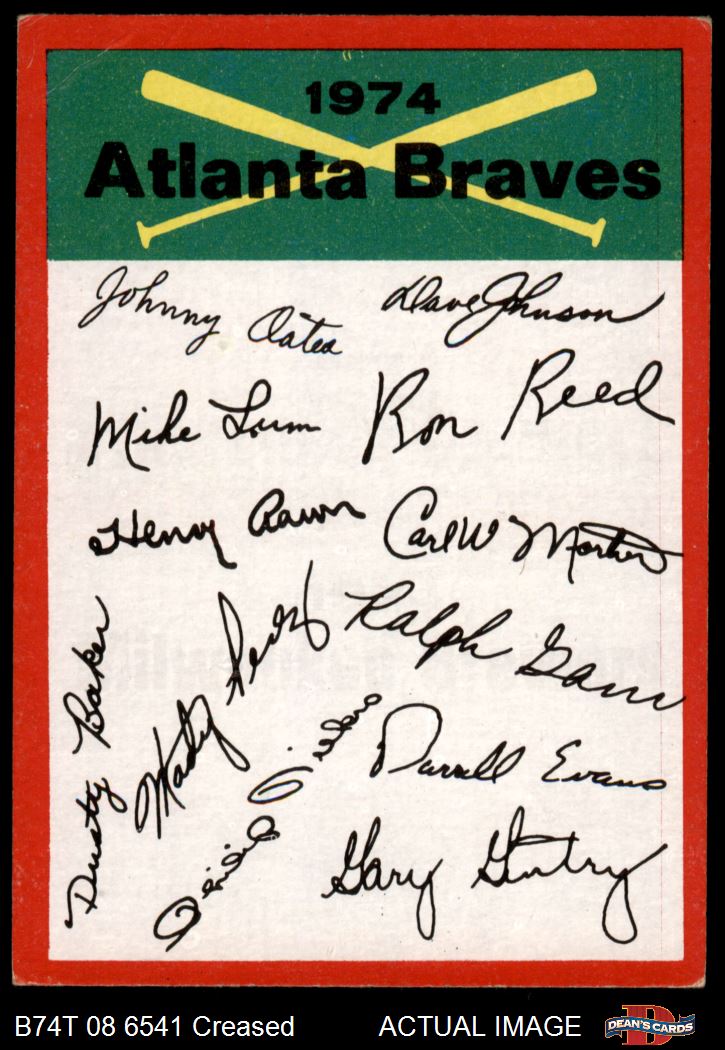 1974
Atlanta Braves
Johnny Oates
Dave Johnson
Mike Lum
Ron Reed
Henry Aaron
Carl W Morton
Dusty Baker
Marty Perez
Ralph Garr
Darrell Evans
Gary Gentry
B74T 08 6541 Creased
ACTUAL IMAGE
DEAN'S CARDS